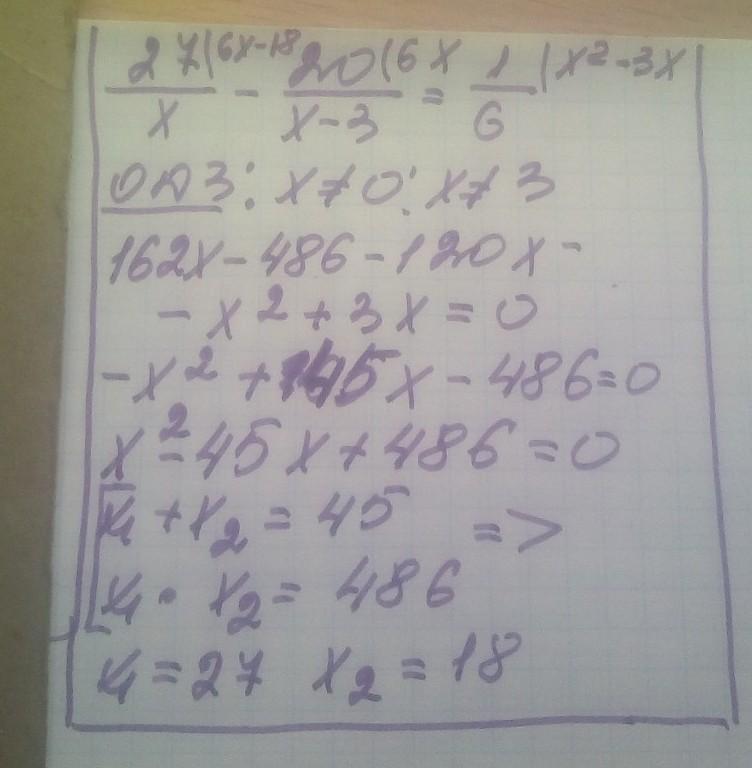 27(6x-18 20(6x 1(x²-3x
── - ── = ─
x x-3 6
ОДЗ: x≠0; x≠3
162x-486-120x-
-x²+3x=0
-x²+45x-486=0
x²-45x+486=0
x₁+x₂=45 =>
x₁·x₂=486
x₁=27 x₂=18